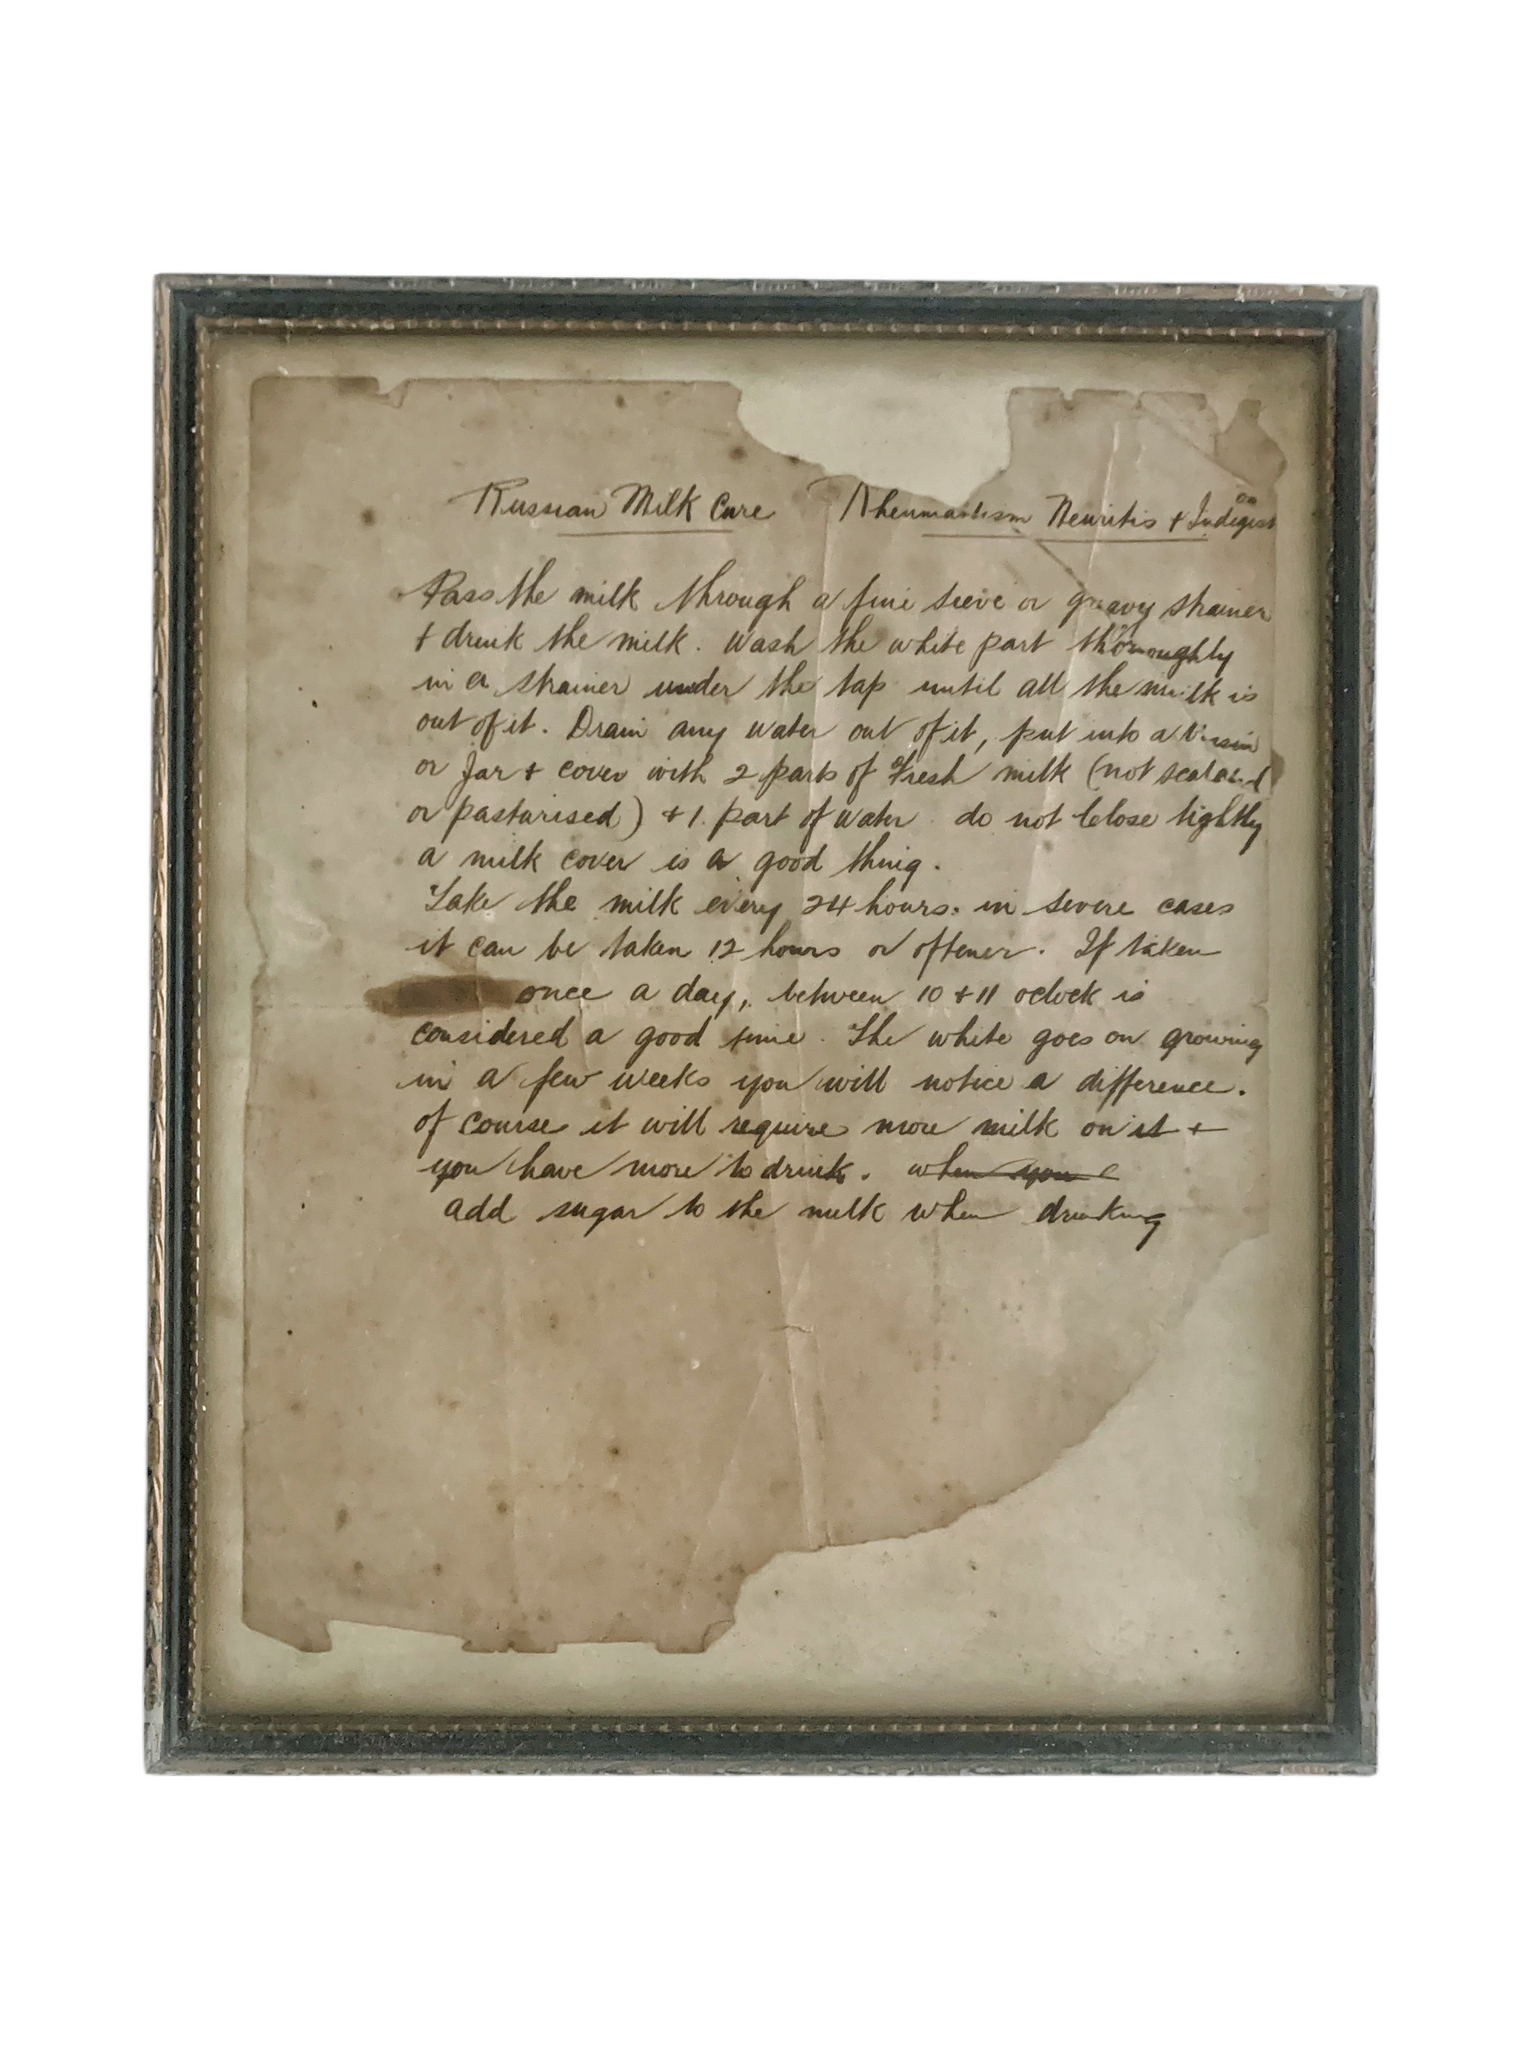 Russian Milk Cure Rheumatism Neuritis & Indigestion
Pass the milk through a fine sieve or gravy strainer
& drink the milk. Wash the white part thoroughly
in a strainer under the tap until all the milk is
out of it. Drain any water out of it, put into a
or Jar & cover with 2 parts of Fresh milk (not
or pasturised) & 1 part of water do not close tightly
a milk cover is a good thing.
Take the milk every 24 hours. in severe cases
it can be taken 12 hours or oftener. If taken
once a day, between 10 & 11 oclock is
considered a good time. The white goes on growing
in a few weeks you will notice a difference.
of course it will require more milk on it &
you have more to drink. when you
add sugar to the milk when drinking